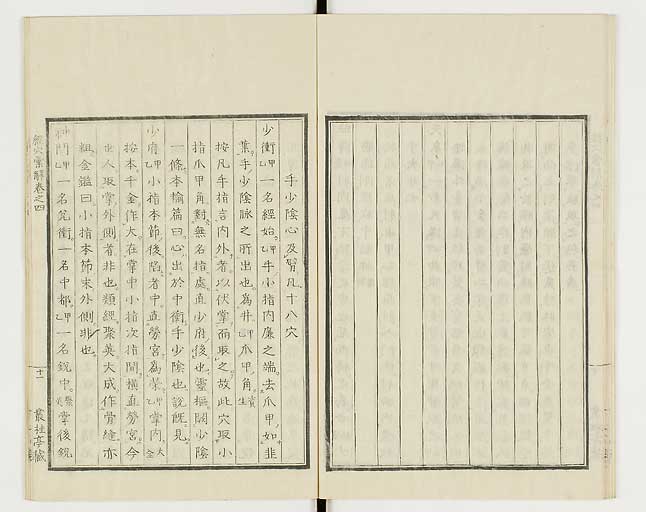 手少陰心及臂凡十八穴
少衝甲乙一名經始甲乙手小指内廉之端去爪甲如韭
葉手少陰脉之所出也為井甲乙爪甲角
按凡手指言内外者以伏掌而取之故此穴取小
指爪甲角對無名指處直少府後也靈樞闕少陰
一條本輸篇曰心出於中衝手少陰也說既見
少府甲乙小指本節後陷者中直勞宮為滎甲乙掌内大全
按本千金作大在掌中小指次指間横直勞宮今
世人取掌外側者非也類經聚英大成作骨縫亦
粗金鑑曰小指本節末外側非也
神門甲乙一名兊衝一名中都甲乙一名銳中聚英掌後銳
經穴彙解卷之四
十一
叢桂亭藏